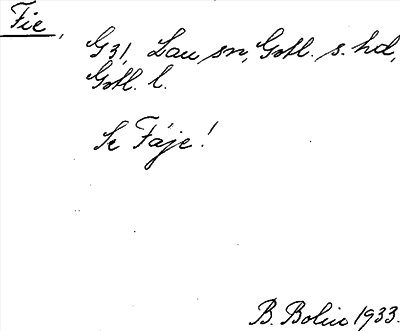 Fie,
G 31, Lau sn, Gotl. s. hd,
Gotl. l.
Se Fáje!
B. Bolin 1933.